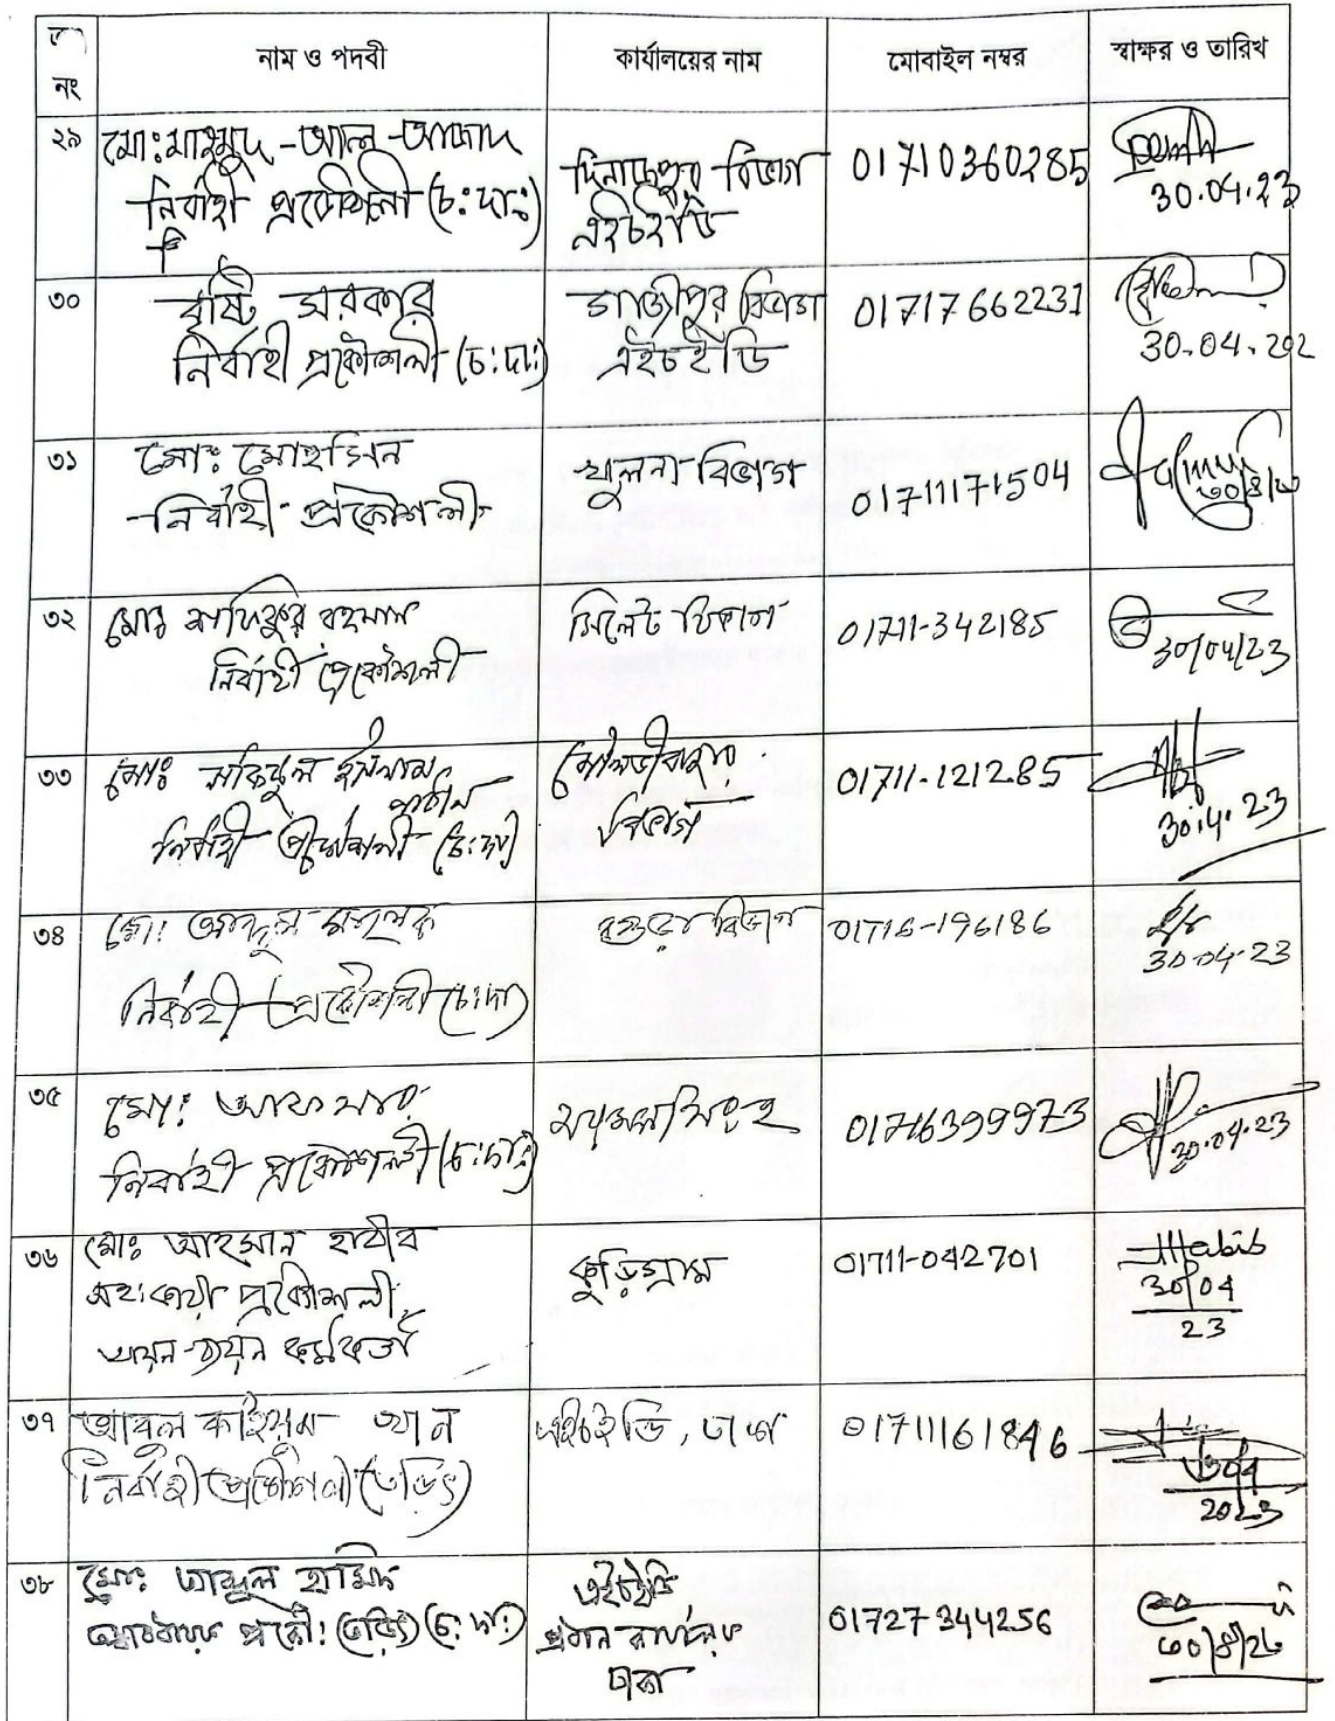 নং
নাম ও পদবী
কার্যালয়ের নাম
মোবাইল নম্বর
স্বাক্ষর ও তারিখ
২৯
মোঃ মাহমুদ-আল-আজাদ
নির্বাহী প্রকৌশলী (চঃ দাঃ)
দিনাজপুর বিভাগ
এইচইডি
01710360285
30.04.23
৩০
বৃষ্টি সরকার
নির্বাহী প্রকৌশলী (চঃদাঃ)
গাজীপুর বিভাগ
এইচইডি
01717662231
30.04.202
৩১
মোঃ মোহসিন
নির্বাহী প্রকৌশলী
খুলনা বিভাগ
01711171504
৩০/৪/২৩
৩২
মোঃ রহমান
নির্বাহী প্রকৌশলী
সিলেট বিভাগ
01711-342185
30/04/23
৩৩
মোঃ ইসলাম
নির্বাহী প্রকৌশলী (চঃদাঃ)
মৌলভীবাজার
বিভাগ
01711-121285
30.4.23
৩৪
মোঃ আব্দুল
নির্বাহী প্রকৌশলী (চঃদাঃ)
বগুড়া বিভাগ
01716-196186
30-04-23
৩৫
মোঃ
নির্বাহী প্রকৌশলী (চঃদাঃ)
ময়মনসিংহ
01716399973
30.04.23
৩৬
মোঃ আহসান হাবীব
সহঃকারী প্রকৌশলী
আয়ন-ব্যয়ন কর্মকর্তা
কুড়িগ্রাম
01711-042701
Habib
30/04
23
৩৭
আবুল কাইয়ুম খান
নির্বাহী প্রকৌশলী (তড়িৎ)
এইচইডি, ঢাকা
01711161846
2023
৩৮
মোঃ আব্দুল হামিদ
প্রকৌঃ (তড়িৎ) (চঃ দাঃ)
এইচইডি
প্রধান কার্যালয়
ঢাকা
01727344256
৩০/৪/২৩